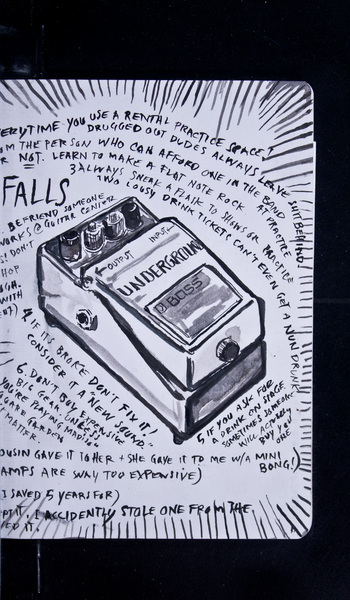 EVERYTIME YOU USE A RENTAL PRACTICE SPACE,
DRUGGED OUT DUDES ALWAYS LEAVE SHIT BEHIND!
OM THE PERSON WHO CAN AFFORD ONE IN THE BAND
R NOT. LEARN TO MAKE A FLAT NOTE ROCK AT PRACTICE
3 ALWAYS SNEAK A FLASK TO SHOWS OR PRACTICE
TWO LOUSY DRINK TICKETS CAN'T EVEN GET A NUN DRUNK
FALLS
BEFRIEND SOMEONE
WORKS @ GUITAR CENTER
! DON'T
HOP
GH.
WITH
OUTPUT
INPUT
UNDERGROUND
BOSS
4 IF ITS BROKE DON'T FIX IT,
CONSIDER IT A "NEW SOUND"
6. DON'T BUY EXPENSIVE
BIG GEAR UNLESS
YOU'RE PLAYING MADISON
SQUARE GARDEN
T MATTER.
5 IF YOU ASK FOR
A DRINK ON STAGE
SOMETIMES SOMEONE
WILL ACTUALLY
BUY YOU
ONE
OUSIN GAVE IT TO HER + SHE GAVE IT TO ME W/A MINI
BONG!)
AMPS ARE WAY TOO EXPENSIVE)
I SAVED 5 YEARS FOR)
PT IT. I ACCIDENTLY STOLE ONE FROM THE
ED IT.